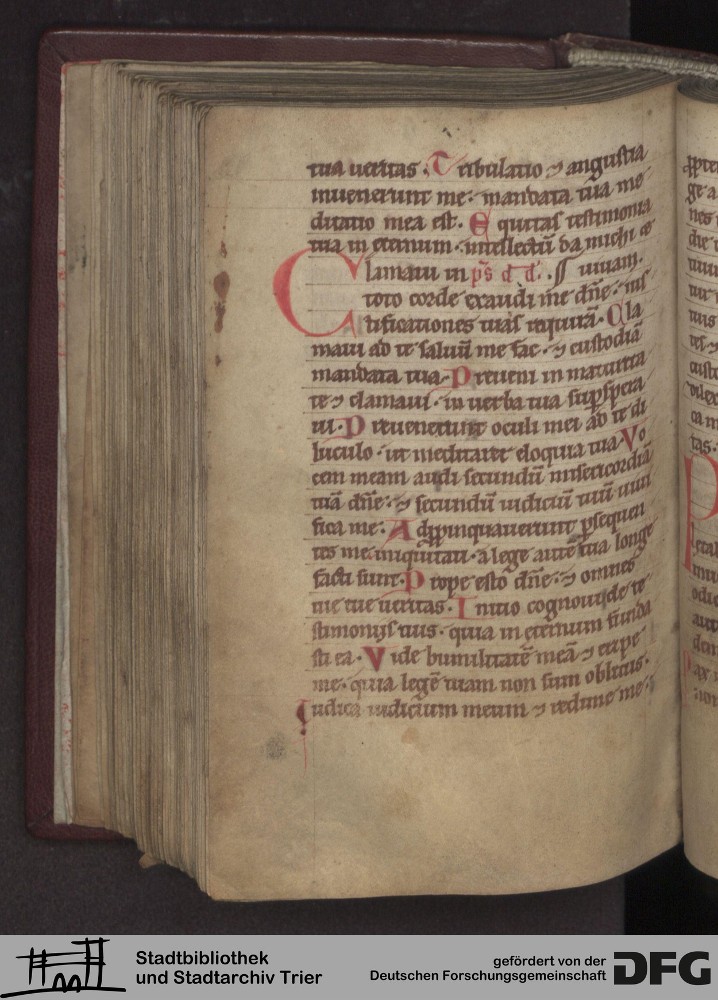 tua ueritas. Tribulatio ⁊ angustia
inuenerunt me. mandata tua me
ditatio mea est. Equitas testimonia
tua in eternum. intellectū da michi ⁊
Clamaui in ps d d. uiuam.
toto corde exaudi me dn̄e. ius
tificationes tuas requirā. Cla
maui ad te saluū me fac. ⁊ custodiā
mandata tua. Preueni in maturita
te ⁊ clamaui. in uerba tua sup̄spera
ui. Preuenerunt oculi mei ad te di
luculo. ut meditarer eloquia tua. Vo
cem meam audi secundū misericordiā
tuā dn̄e. ⁊ secundū iudiciū tuū uiui
fica me. Adp̄pinquauerunt p̄sequen
tes me iniquitati. a lege autē tua longe
facti sunt. Prope esto dn̄e. ⁊ omnes
uie tue ueritas. Initio cognoui de te
stimonijs tuis. quia in eternum funda
sti ea. Vide humilitatē meā ⁊ eripe
me. quia legē tuam non sum oblitus.
Iudica iudicium meum ⁊ redime me.
Stadtbibliothek
und Stadtarchiv Trier
gefördert von der
Deutschen Forschungsgemeinschaft
DFG